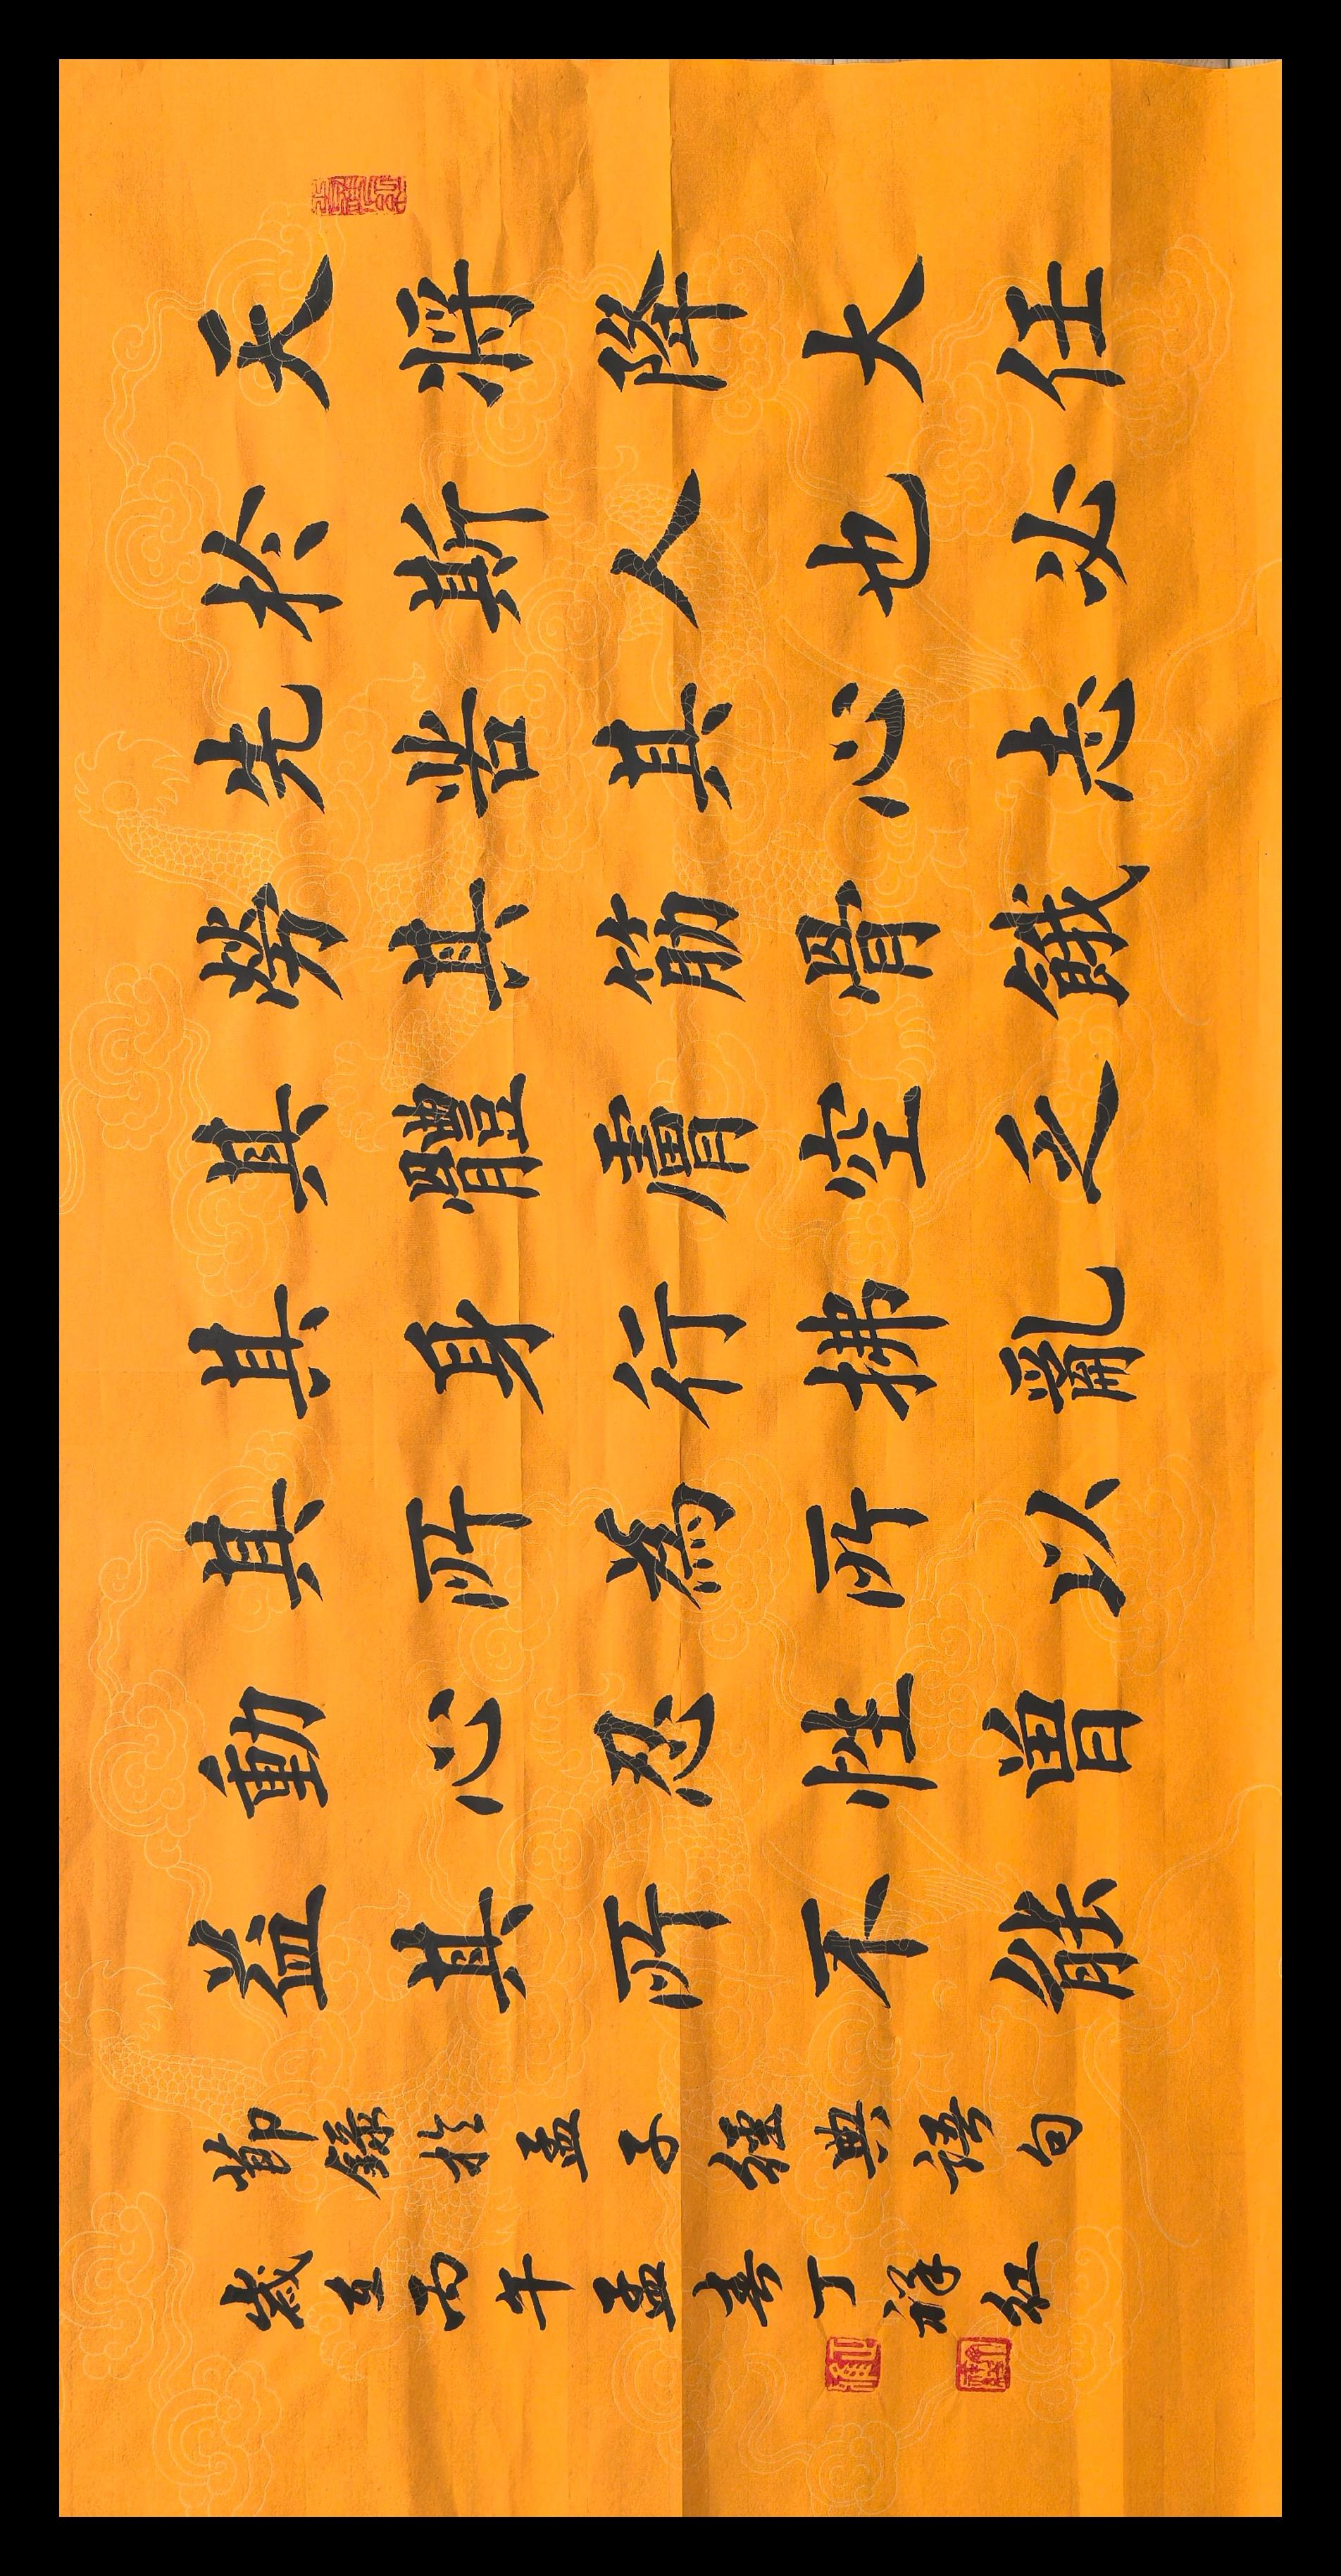 天将降大任
於斯人也必
先苦其心志
勞其筋骨餓
其體膚空乏
其身行拂亂
其所為所以
動心忍性曾
益其所不能
節錄於孟子經典語句
歲在丙午孟春丁紅